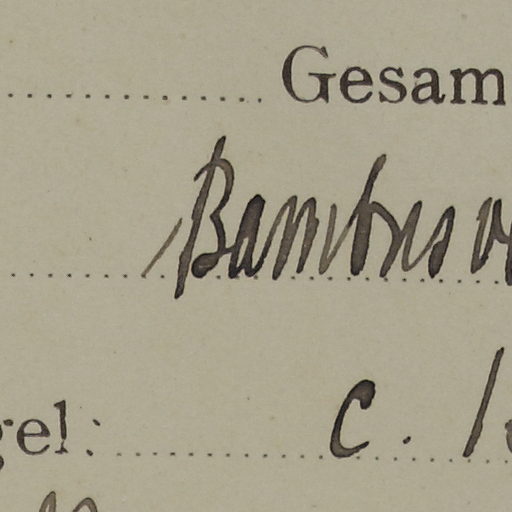 Gesam
Bambus
gel:
c. 1